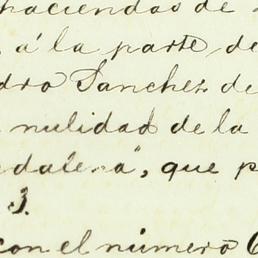 haciendas de
á la parte, de
dro Sanchez de
nulidad de la
dalena", que p
3.
con el número 6